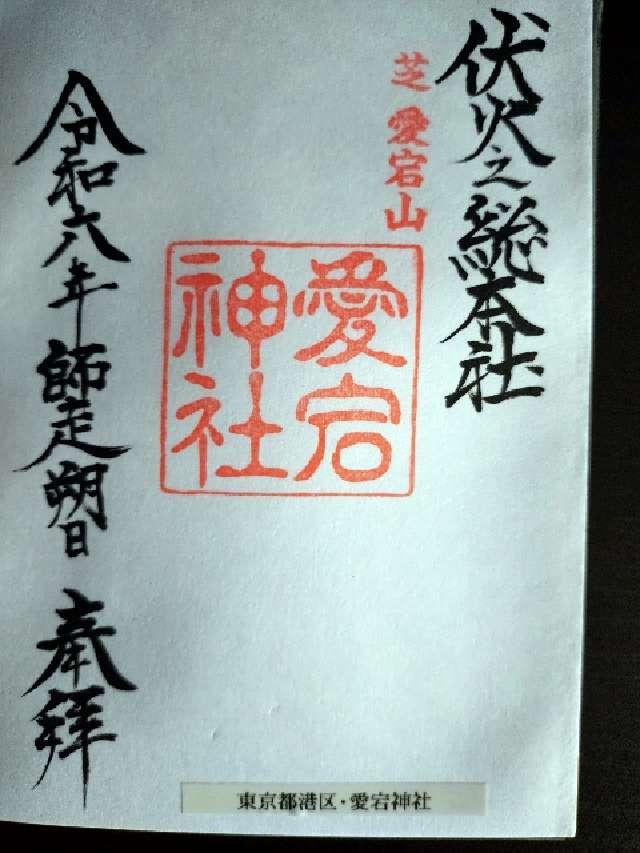 伏火之総本社
芝 愛宕山
愛宕
神社
令和六年 師走朔日 奉拝
東京都港区・愛宕神社